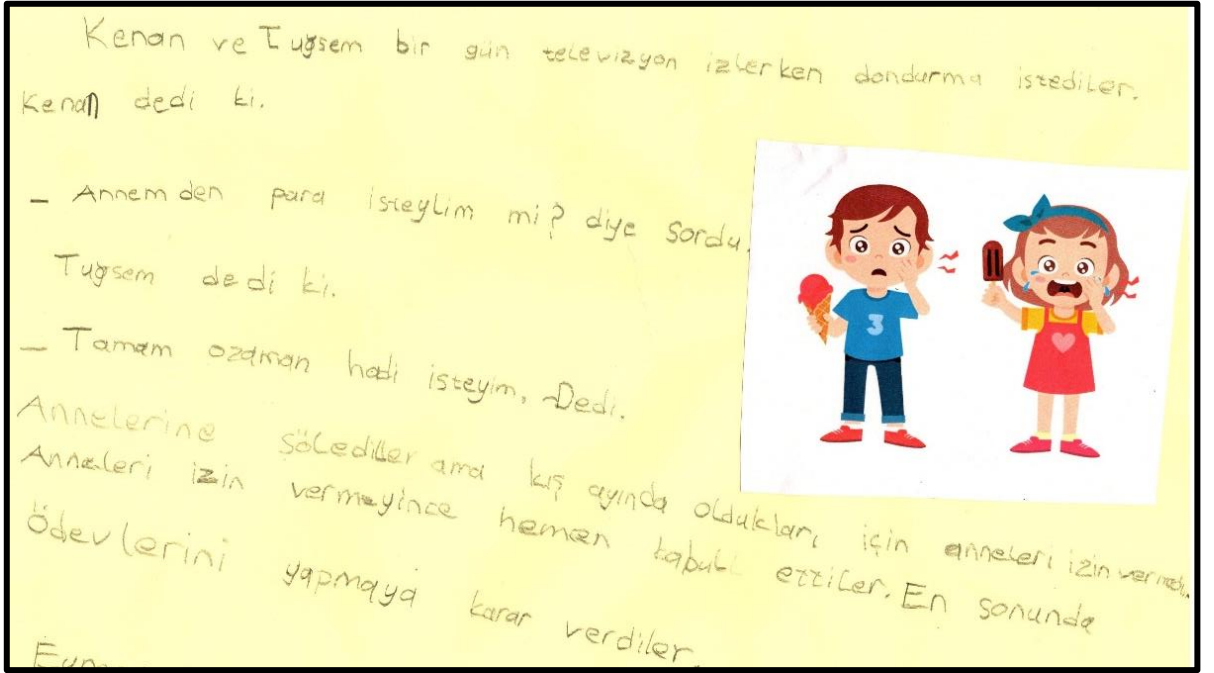 Kenan ve Tuğsem bir gün televizyon izlerken dondurma istediler.
Kenan dedi ki.
- Annem den para isteylim mi? diye sordu.
Tuğsem dedi ki.
- Tamam ozaman hadi isteyim, Dedi.
Annelerine söledliler ama kış ayında oldukları için anneleri izin vermedi.
Anneleri izin vermeyince hemen kabull ettiler. En sonunda
Ödevlerini yapmaya karar verdiler.
3